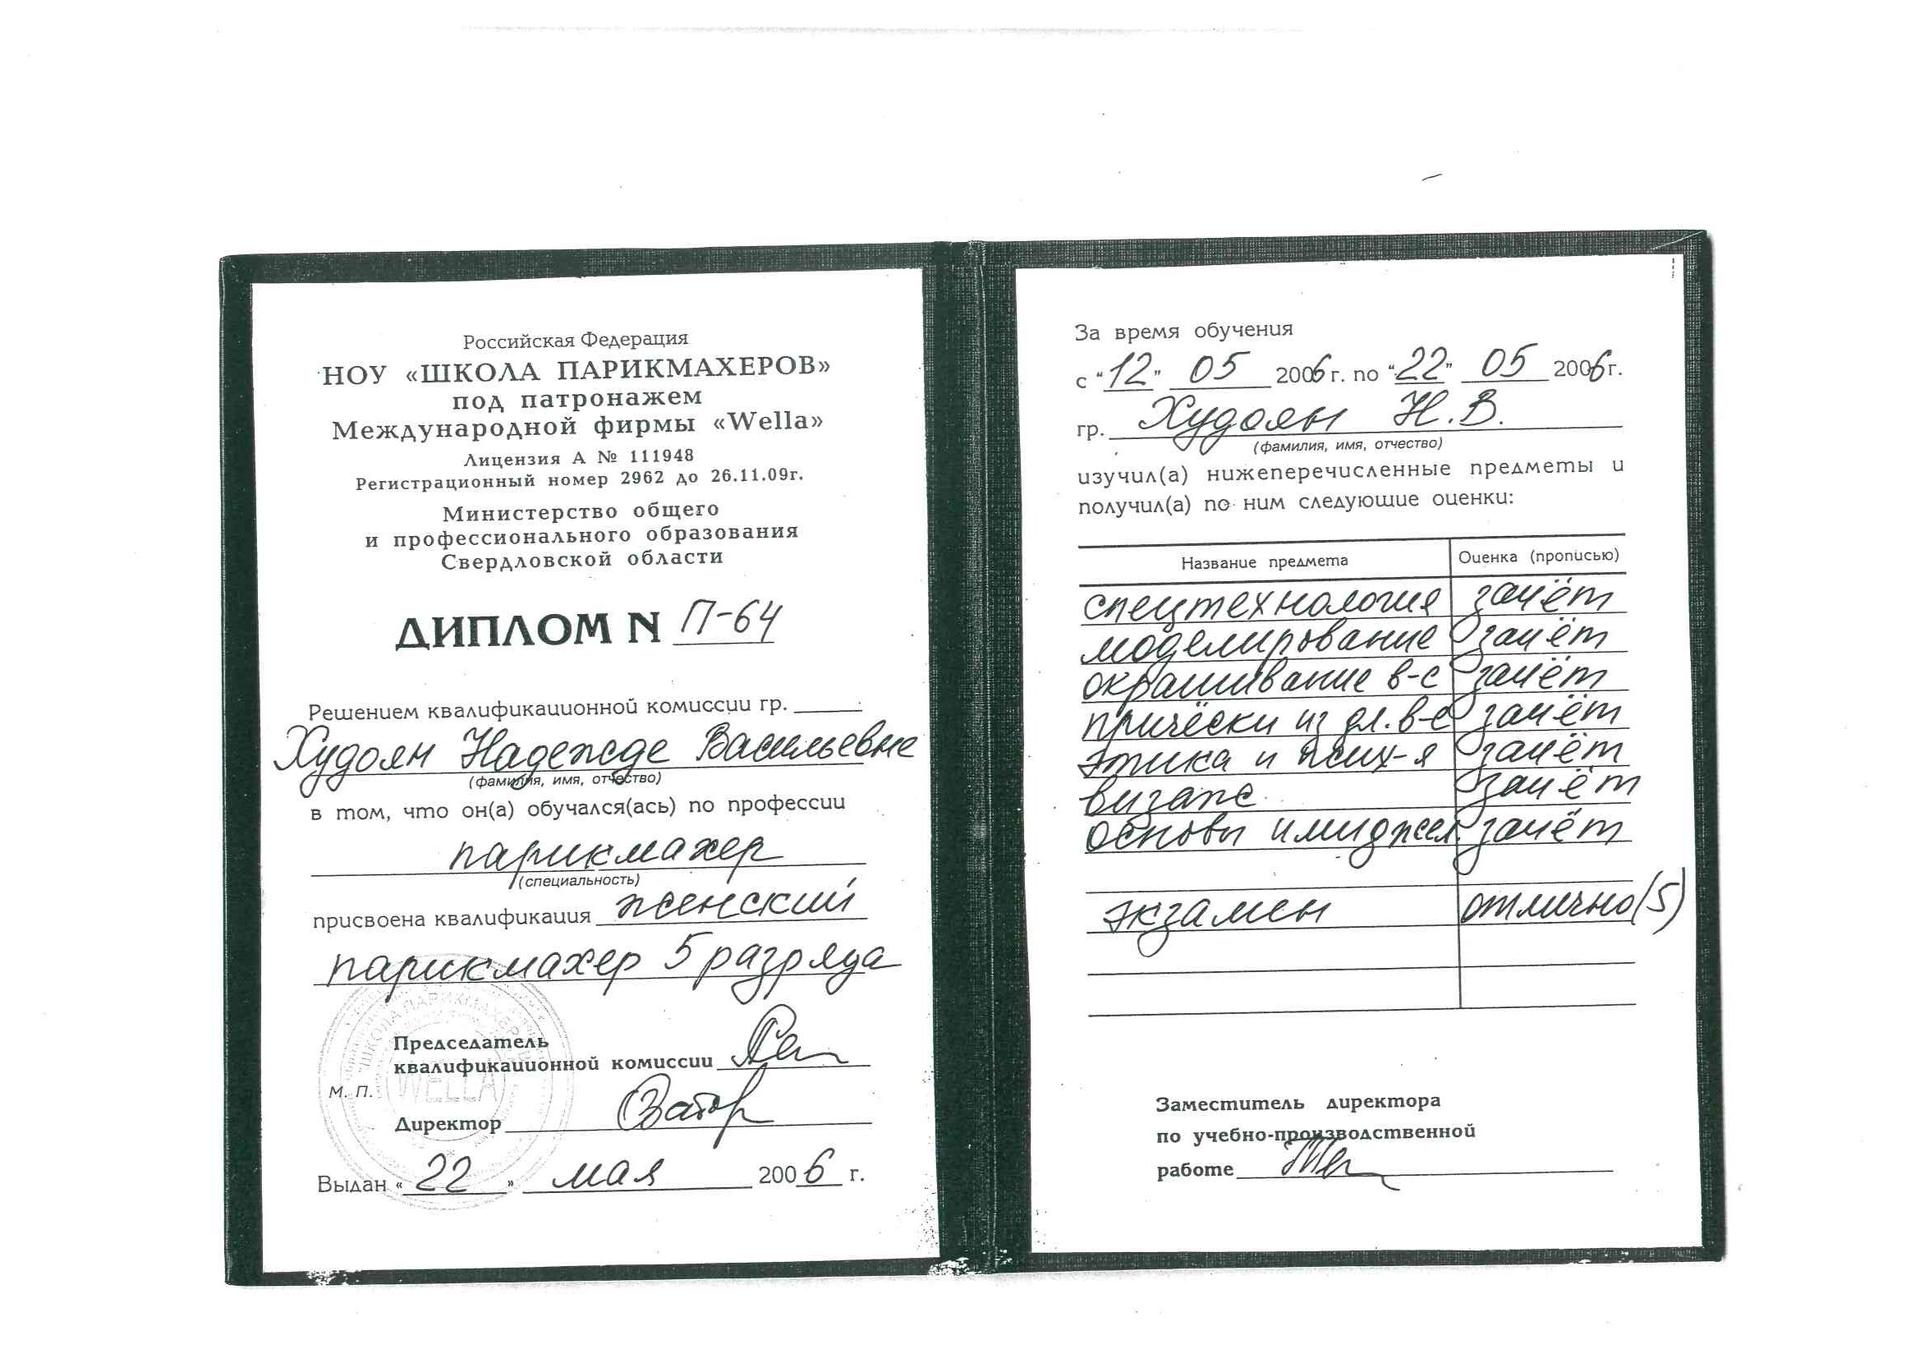 Российская Федерация
НОУ «ШКОЛА ПАРИКМАХЕРОВ»
под патронажем
Международной фирмы «Wella»
Лицензия А № 111948
Регистрационный номер 2962 до 26.11.09г.
Министерство общего
и профессионального образования
Свердловской области
ДИПЛОМ N П-64
Решением квалификационной комиссии гр.
Худоян Надежде Васильевне
(фамилия, имя, отчество)
в том, что он(а) обучался(ась) по профессии
парикмахер
(специальность)
присвоена квалификация женский
парикмахер 5 разряда
ШКОЛА ПАРИКМАХЕРОВ
WELLA
Председатель
квалификационной комиссии
м. п.
Директор
Выдан «22» мая 2006 г.
За время обучения
с "12" 05 2006г. по "22" 05 2006г.
гр. Худоян Н.В.
(фамилия, имя, отчество)
изучил(а) нижеперечисленные предметы и
получил(а) по ним следующие оценки:
Название предмета Оценка (прописью)
спецтехнология зачёт
моделирование зачёт
окрашивание в-с зачёт
причёски из дл. в-с зачёт
этика и псих-я зачёт
визаж зачёт
основы имиджел. зачёт
экзамен отлично(5)
Заместитель директора
по учебно-производственной
работе